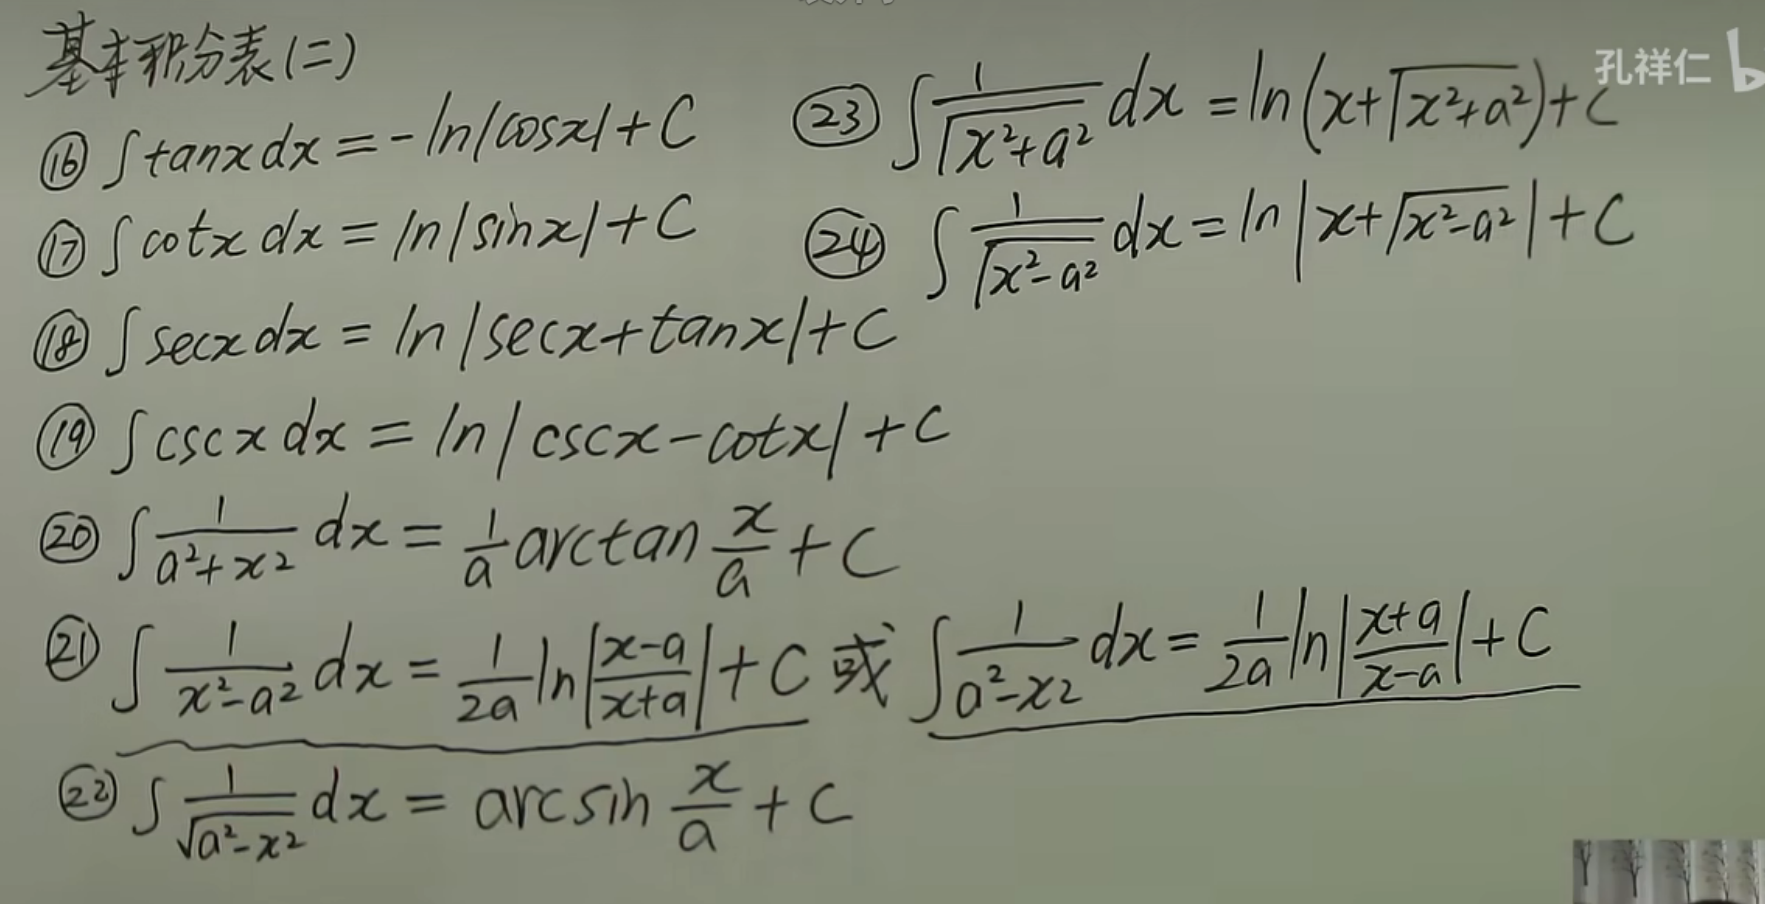 基本积分表(二)
⑯ ∫tanx dx = -ln|cosx|+C
⑰ ∫cotx dx = ln|sinx|+C
⑱ ∫secx dx = ln|secx+tanx|+C
⑲ ∫cscx dx = ln|cscx-cotx|+C
⑳ ∫\frac{1}{a²+x²} dx = \frac{1}{a} arctan \frac{x}{a} + C
㉑ ∫\frac{1}{x²-a²} dx = \frac{1}{2a} ln|\frac{x-a}{x+a}| + C 或 ∫\frac{1}{a²-x²} dx = \frac{1}{2a} ln|\frac{x+a}{x-a}| + C
㉒ ∫\frac{1}{√(a²-x²)} dx = arcsin \frac{x}{a} + C
㉓ ∫\frac{1}{√(x²+a²)} dx = ln(x+√(x²+a²))+C
㉔ ∫\frac{1}{√(x²-a²)} dx = ln|x+√(x²-a²)|+C
孔祥仁 b